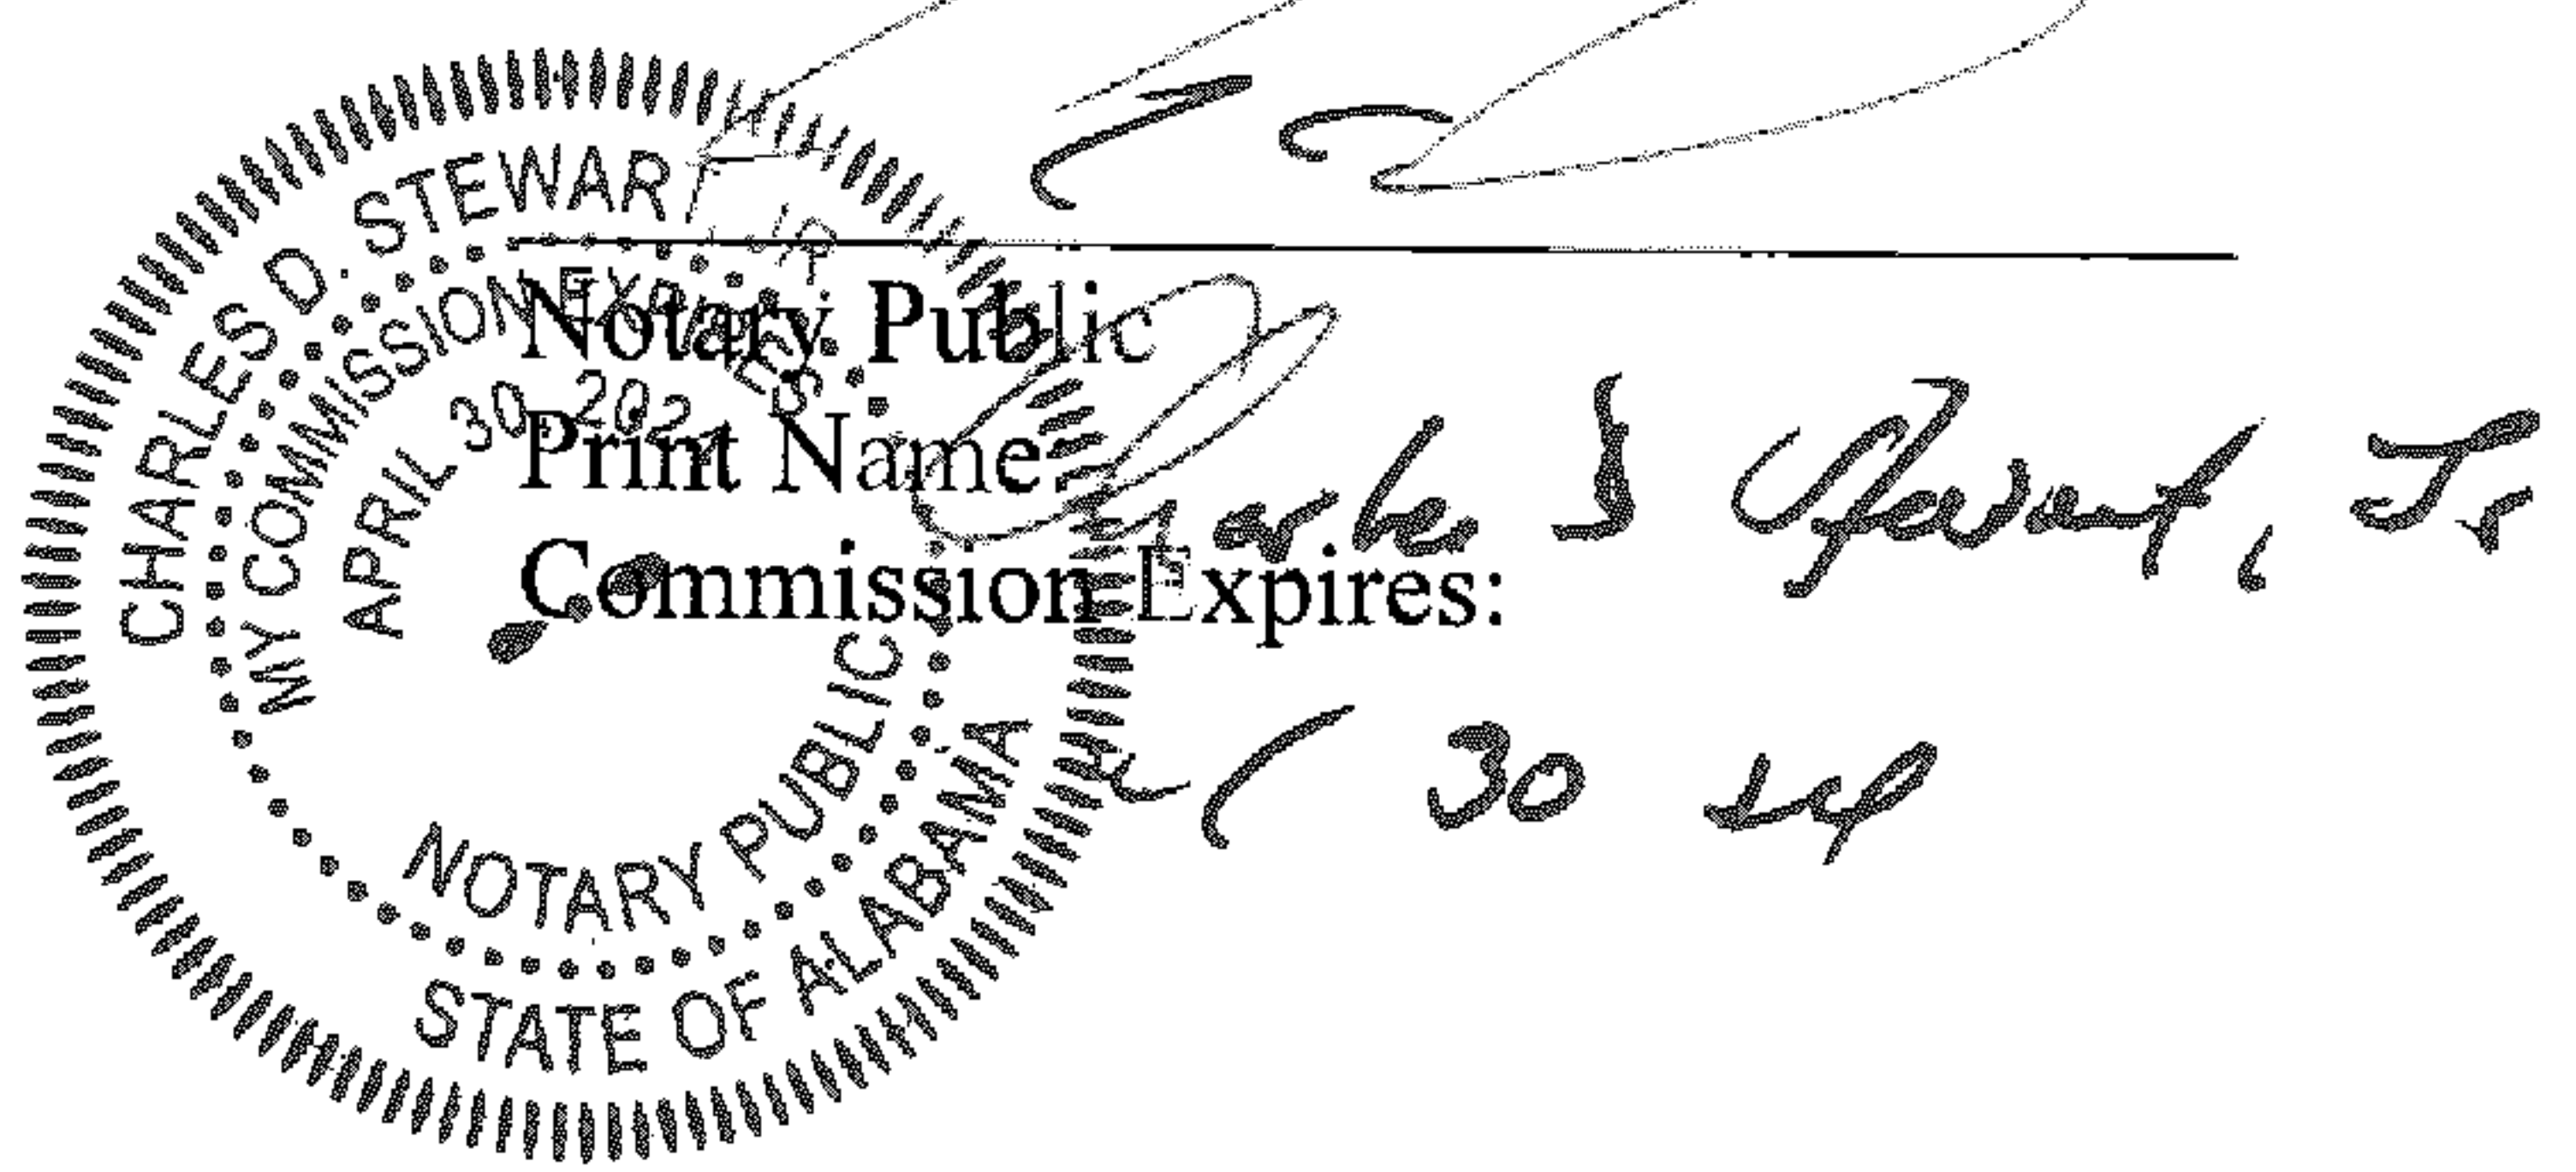 CHARLES D. STEWART, JR.
MY COMMISSION EXPIRES
APRIL 30, 202
NOTARY PUBLIC
STATE OF ALABAMA
Notary Public
Print Name: Charles D Stewart, Jr
Commission Expires:
30